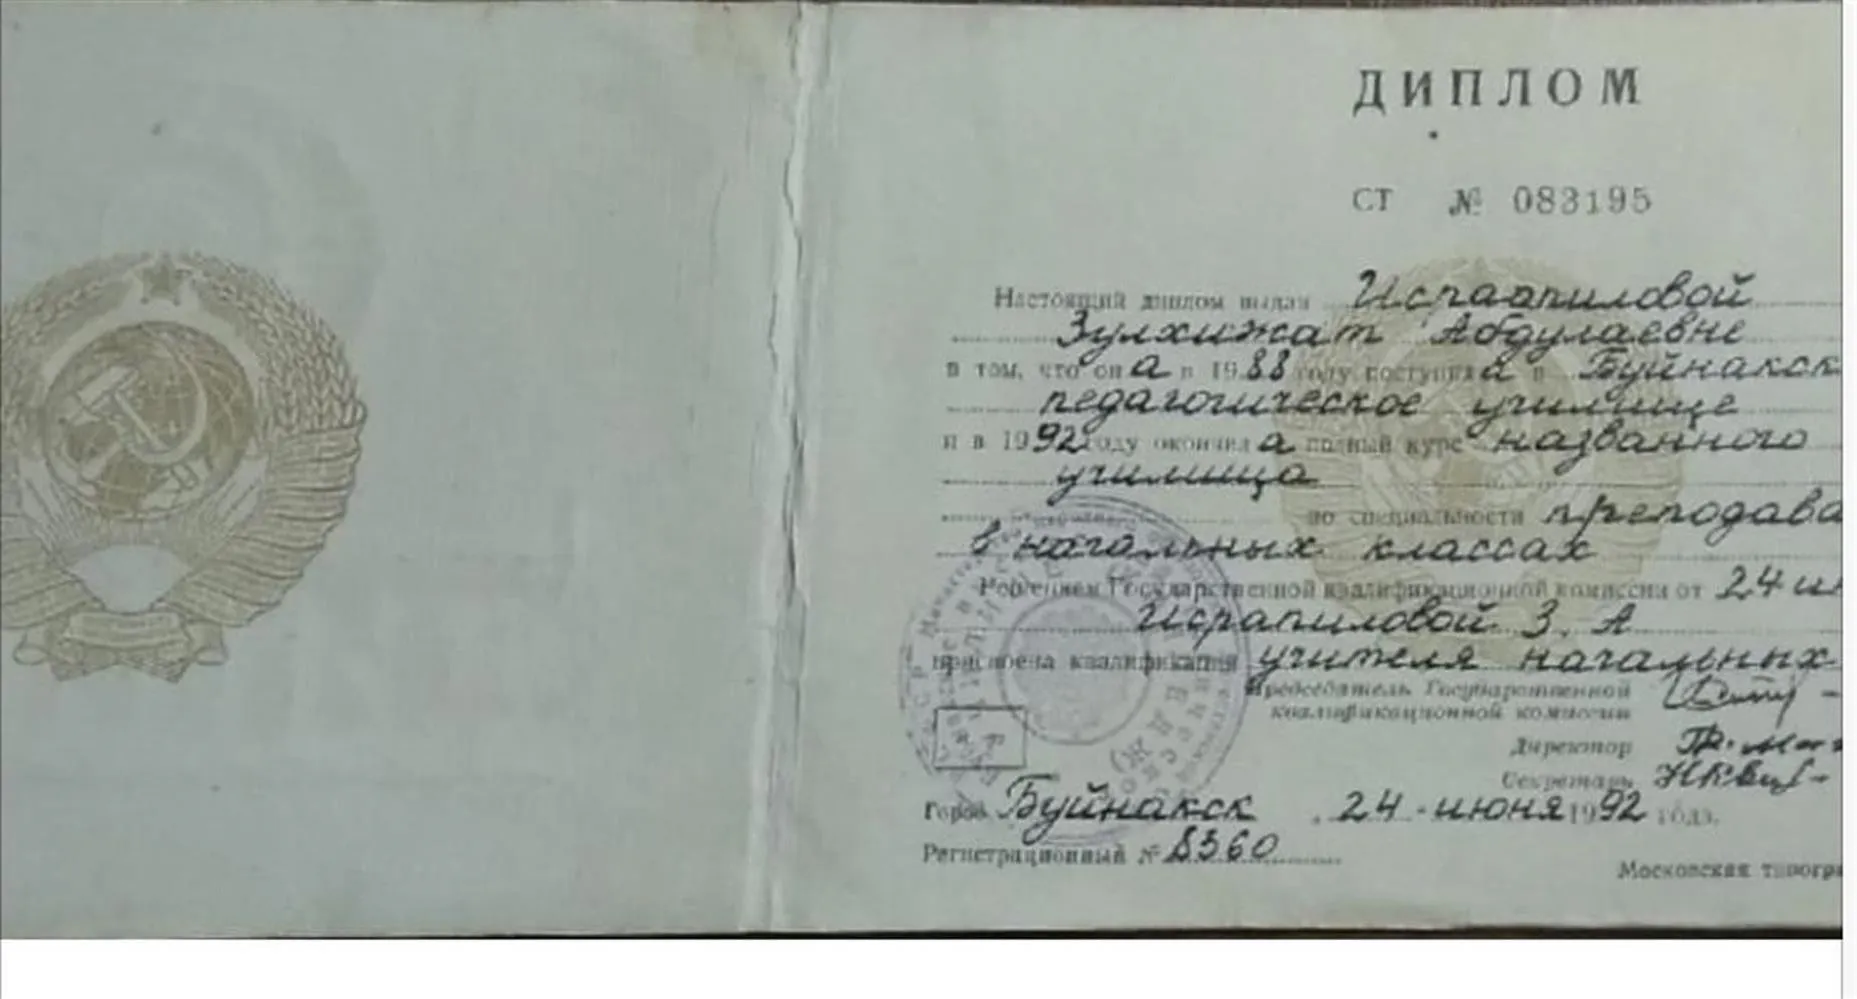 ДИПЛОМ
СТ № 083195
Настоящий диплом выдан Исрапиловой
Зулхижат Абдулаевне
в том, что он а в 1988 году поступил а в Буйнакск
педагогическое училище
и в 1992 году окончил а полный курс названного
училища
по специальности преподава
в начальных классах
Решением Государственной квалификационной комиссии от 24 ию
Исрапиловой З. А
присвоена квалификация учителя начальных
Председатель Государственной
квалификационной комиссии
Директор
Секретарь
Город Буйнакск, 24 июня 1992 года.
Регистрационный № 8360
Московская типогра